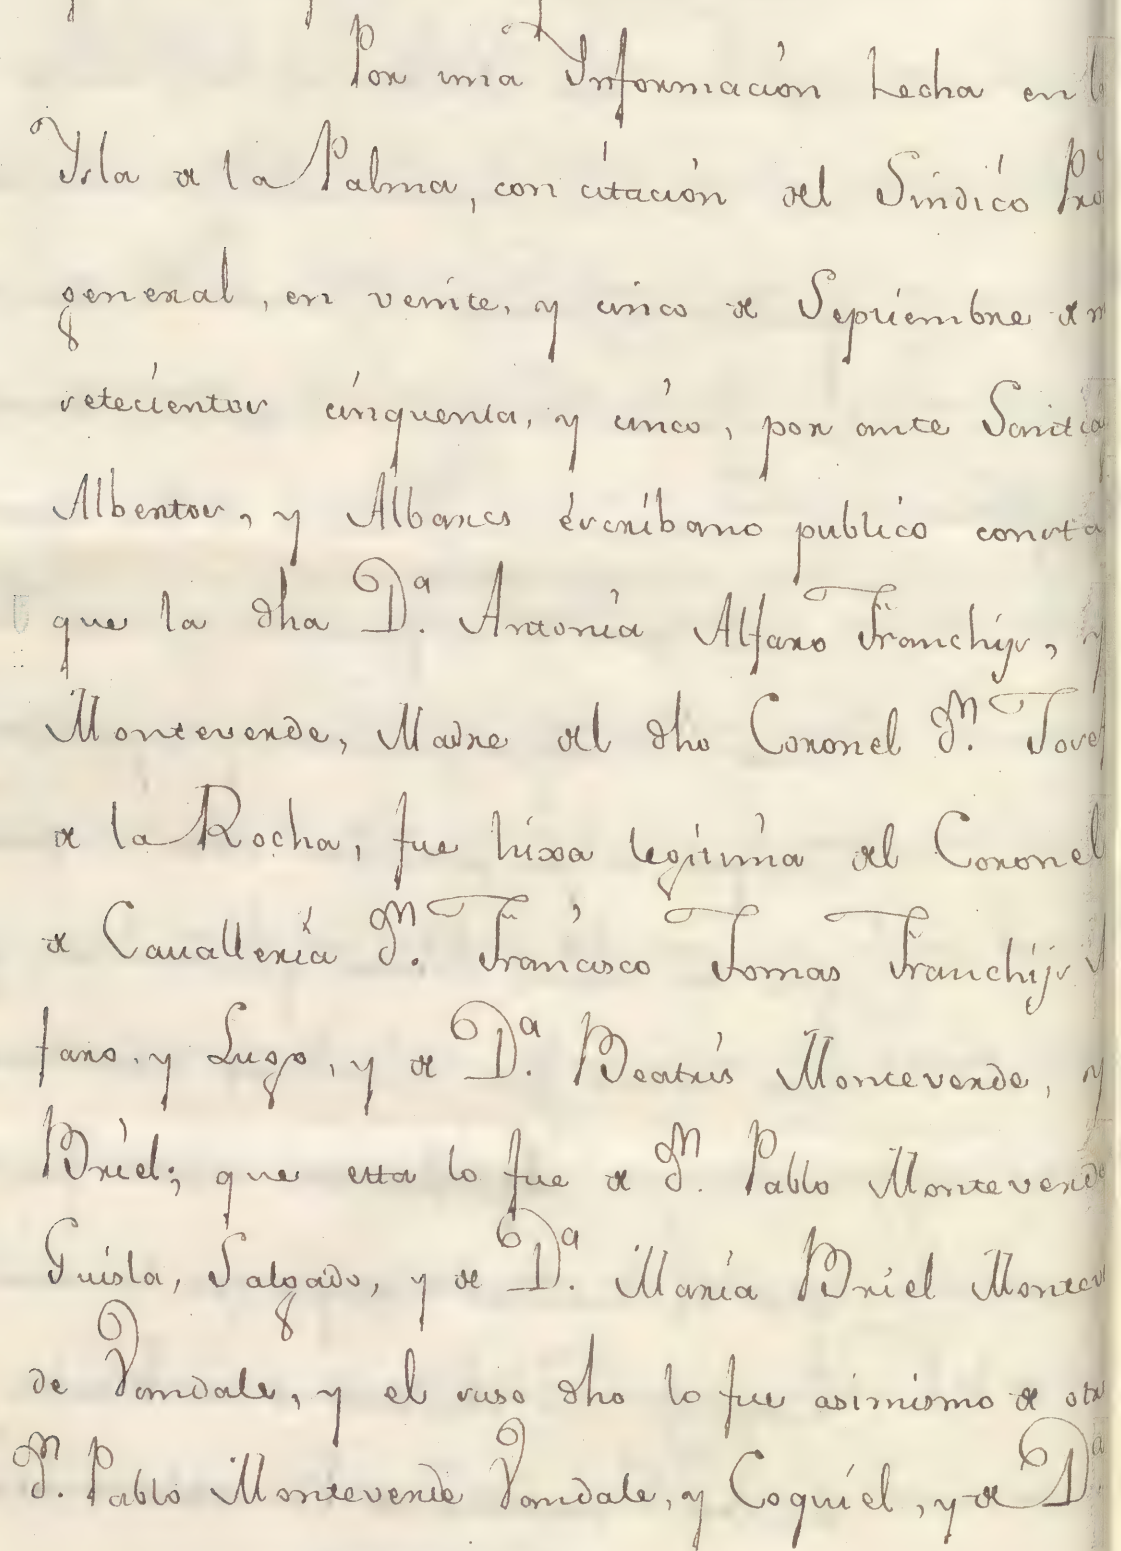 Por una Ynformación hecha en l
Ysla de la Palma, con citación del Sindico Pro
general, en veinte, y cinco de Septiembre de m
setecientos cinquenta, y cinco, por ante Santia
Albertos, y Albares escribano publico consta
que la dha D.ª Antonia Alfaro Franchijs, y
Monteverde, Madre del dho Coronel D.n Josef
de la Rocha, fue hixa legitima del Coronel
de Cauallería D.n Francisco Tomas Franchijs Al
faro, y Lugo, y de D.ª Beatris Monteverde, y
Briel; que esta lo fue de D.n Pablo Monteverde
Guisla, Salgado, y de D.ª María Briel Montev
de Vandale, y el suso dho lo fue asimismo de otr
D.n Pablo Monteverde Vandale, y Coquiel, y de D.ª